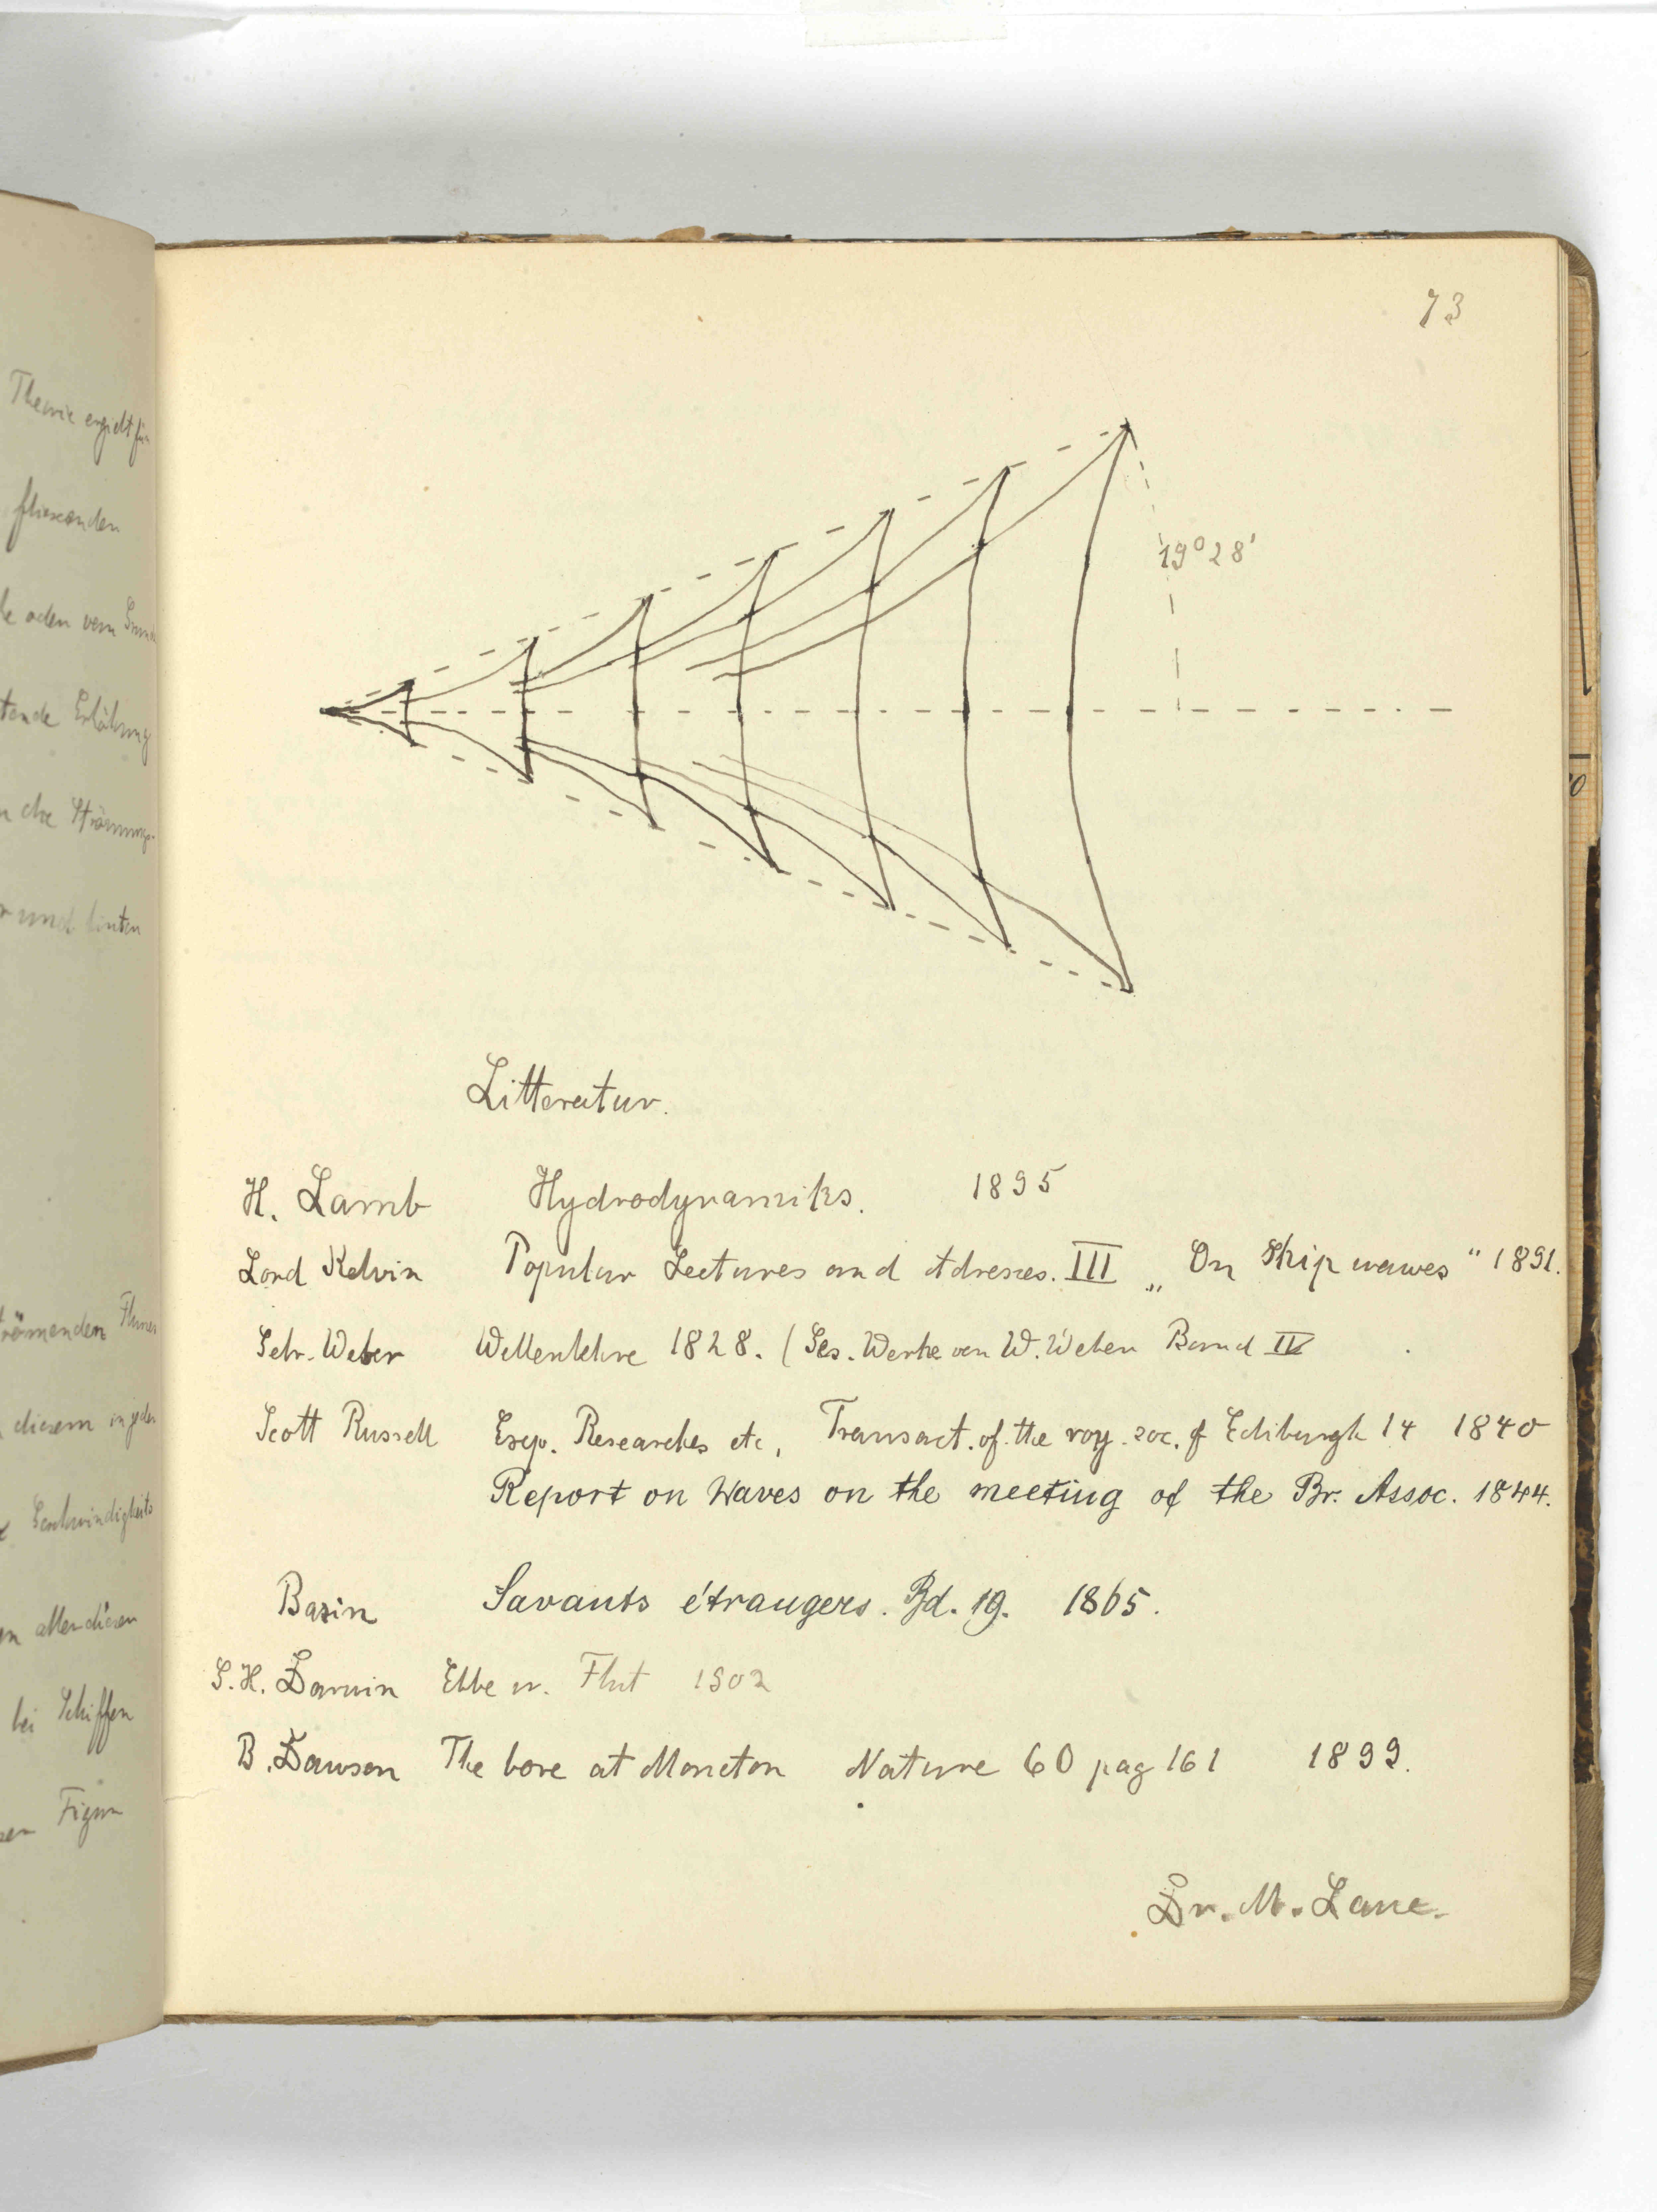 Theorie ergiebt für
fliessenden
oder vom
Erhöhung
die Strömungs-
und hinten
strömenden Flusses
diesem in jeder
Geschwindigkeits
allen diesen
bei Schiffen
Figur
73
19° 28'
Litteratur.
H. Lamb Hydrodynamiks. 1895
Lord Kelvin Popular Lectures and Adresses. III „On Ship wawes“ 1891.
Gebr. Weber Wellenlehre 1828. (Ges. Werke von W. Weber Band IV
Scott Russell Exp. Researches etc, Transact. of the roy. soc. of Ediburgh 14 1840
Report on Waves on the meeting of the Br. Assoc. 1844.
Bazin Savants étrangers. Bd. 19. 1865.
G. H. Darwin Ebbe u. Flut 1902
B. Dawson The bore at Moncton Nature 60 pag 161 1899.
Dr. M. Laue.